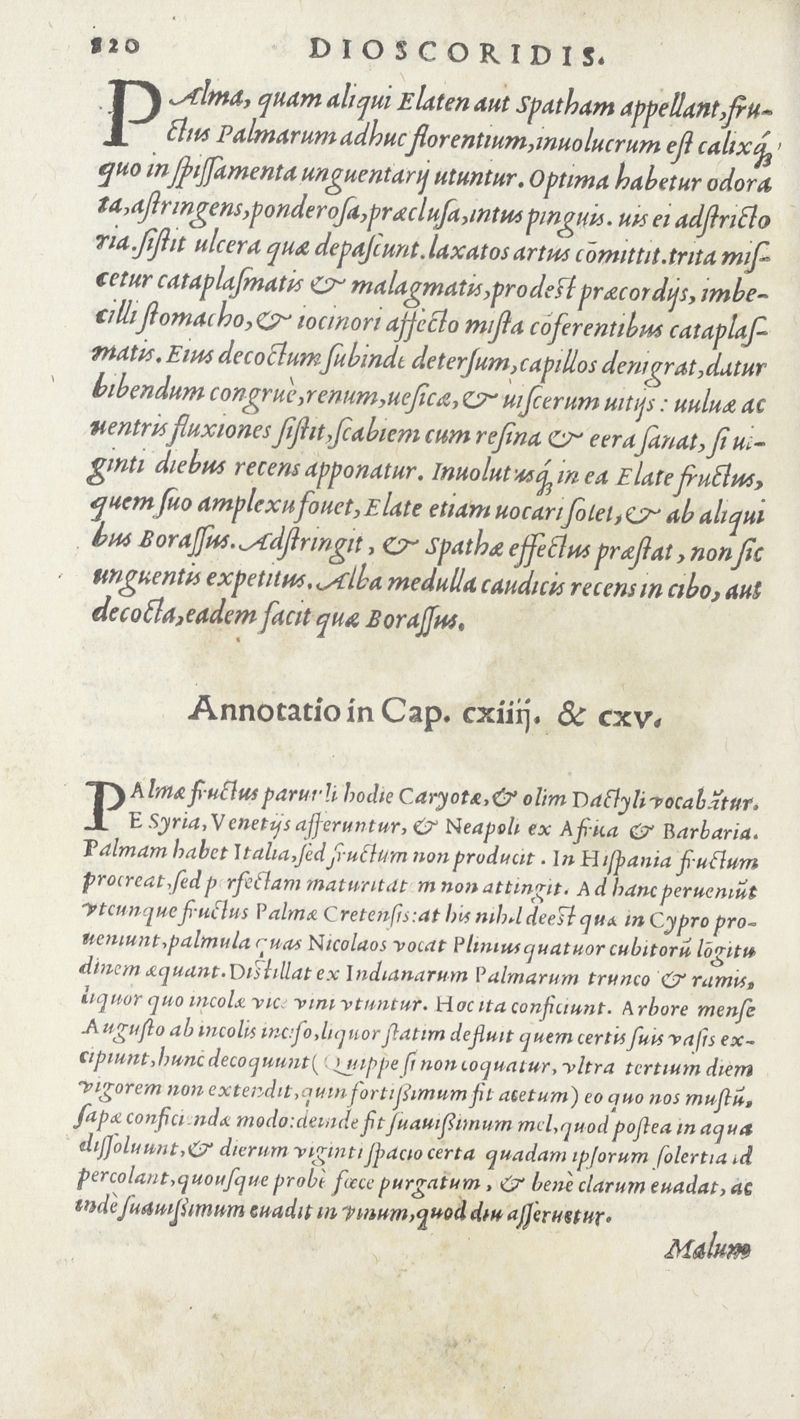 120 DIOSCORIDIS.
PAlma, quam aliqui Elaten aut Spatham appellant, fru-
ctus Palmarum adhuc florentium, inuolucrum est calixq́;
quo in spissamenta unguentarij utuntur. Optima habetur odora
ta, astringens, ponderosa, præclusa, intus pinguis. uis ei adstricto
ria. sistit ulcera quæ depascunt. laxatos artus cōmittit. trita mis-
cetur cataplasmatis & malagmatis, prodest præcordijs, imbe-
cilli stomacho, & iocinori affecto mista cōferentibus cataplas-
matis. Eius decoctum subinde detersum, capillos denigrat, datur
bibendum congruè, renum, uesicæ, & uiscerum uitijs: uuluæ ac
uentris fluxiones sistit, scabiem cum resina & cera sanat, si ui-
ginti diebus recens apponatur. Inuolutusq́; in ea Elate fructus,
quem suo amplexu fouet, Elate etiam uocari solet, & ab aliqui
bus Borassus. Adstringit, & Spathæ effectus præstat, non sic
unguentis expetitus. Alba medulla caudicis recens in cibo, aut
decocta, eadem facit quæ Borassus.
Annotatio in Cap. cxiiij. & cxv.
PAlmæ fructus paruuli hodie Caryotæ, & olim Dactyli vocabātur.
E Syria, Venetijs afferuntur, & Neapoli ex Africa & Barbaria.
Palmam habet Italia, sed fructum non producit. In Hispania fructum
procreat, sed perfectam maturitatem non attingit. Ad hanc perueniūt
vtcunque fructus Palmæ Cretensis: at his nihil deest quæ in Cypro pro-
ueniunt, palmula quas Nicolaos vocat Plinius quatuor cubitorū lōgitu
dinem æquant. Distillat ex Indianarum Palmarum trunco & ramis,
liquor quo incolæ vice vini vtuntur. Hoc ita conficiunt. Arbore mense
Augusto ab incolis inciso, liquor statim defluit quem certis suis vasis ex-
cipiunt, hunc decoquunt (Quippe si non coquatur, vltra tertium diem
vigorem non extendit, quin fortißimum fit acetum) eo quo nos mustū,
sapæ conficiendæ modo: deinde fit suauißimum mel, quod postea in aqua
dissoluunt, & dierum viginti spacio certa quadam ipsorum solertia id
percolant, quousque probè fœce purgatum, & benè clarum euadat, ac
indè suauißimum euadit in vinum, quod diu asseruetur.
Malum